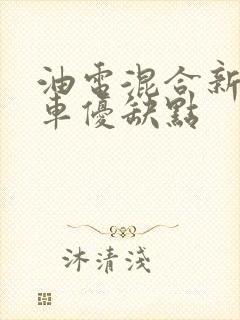 油電混合新
車優缺點
沐清淺